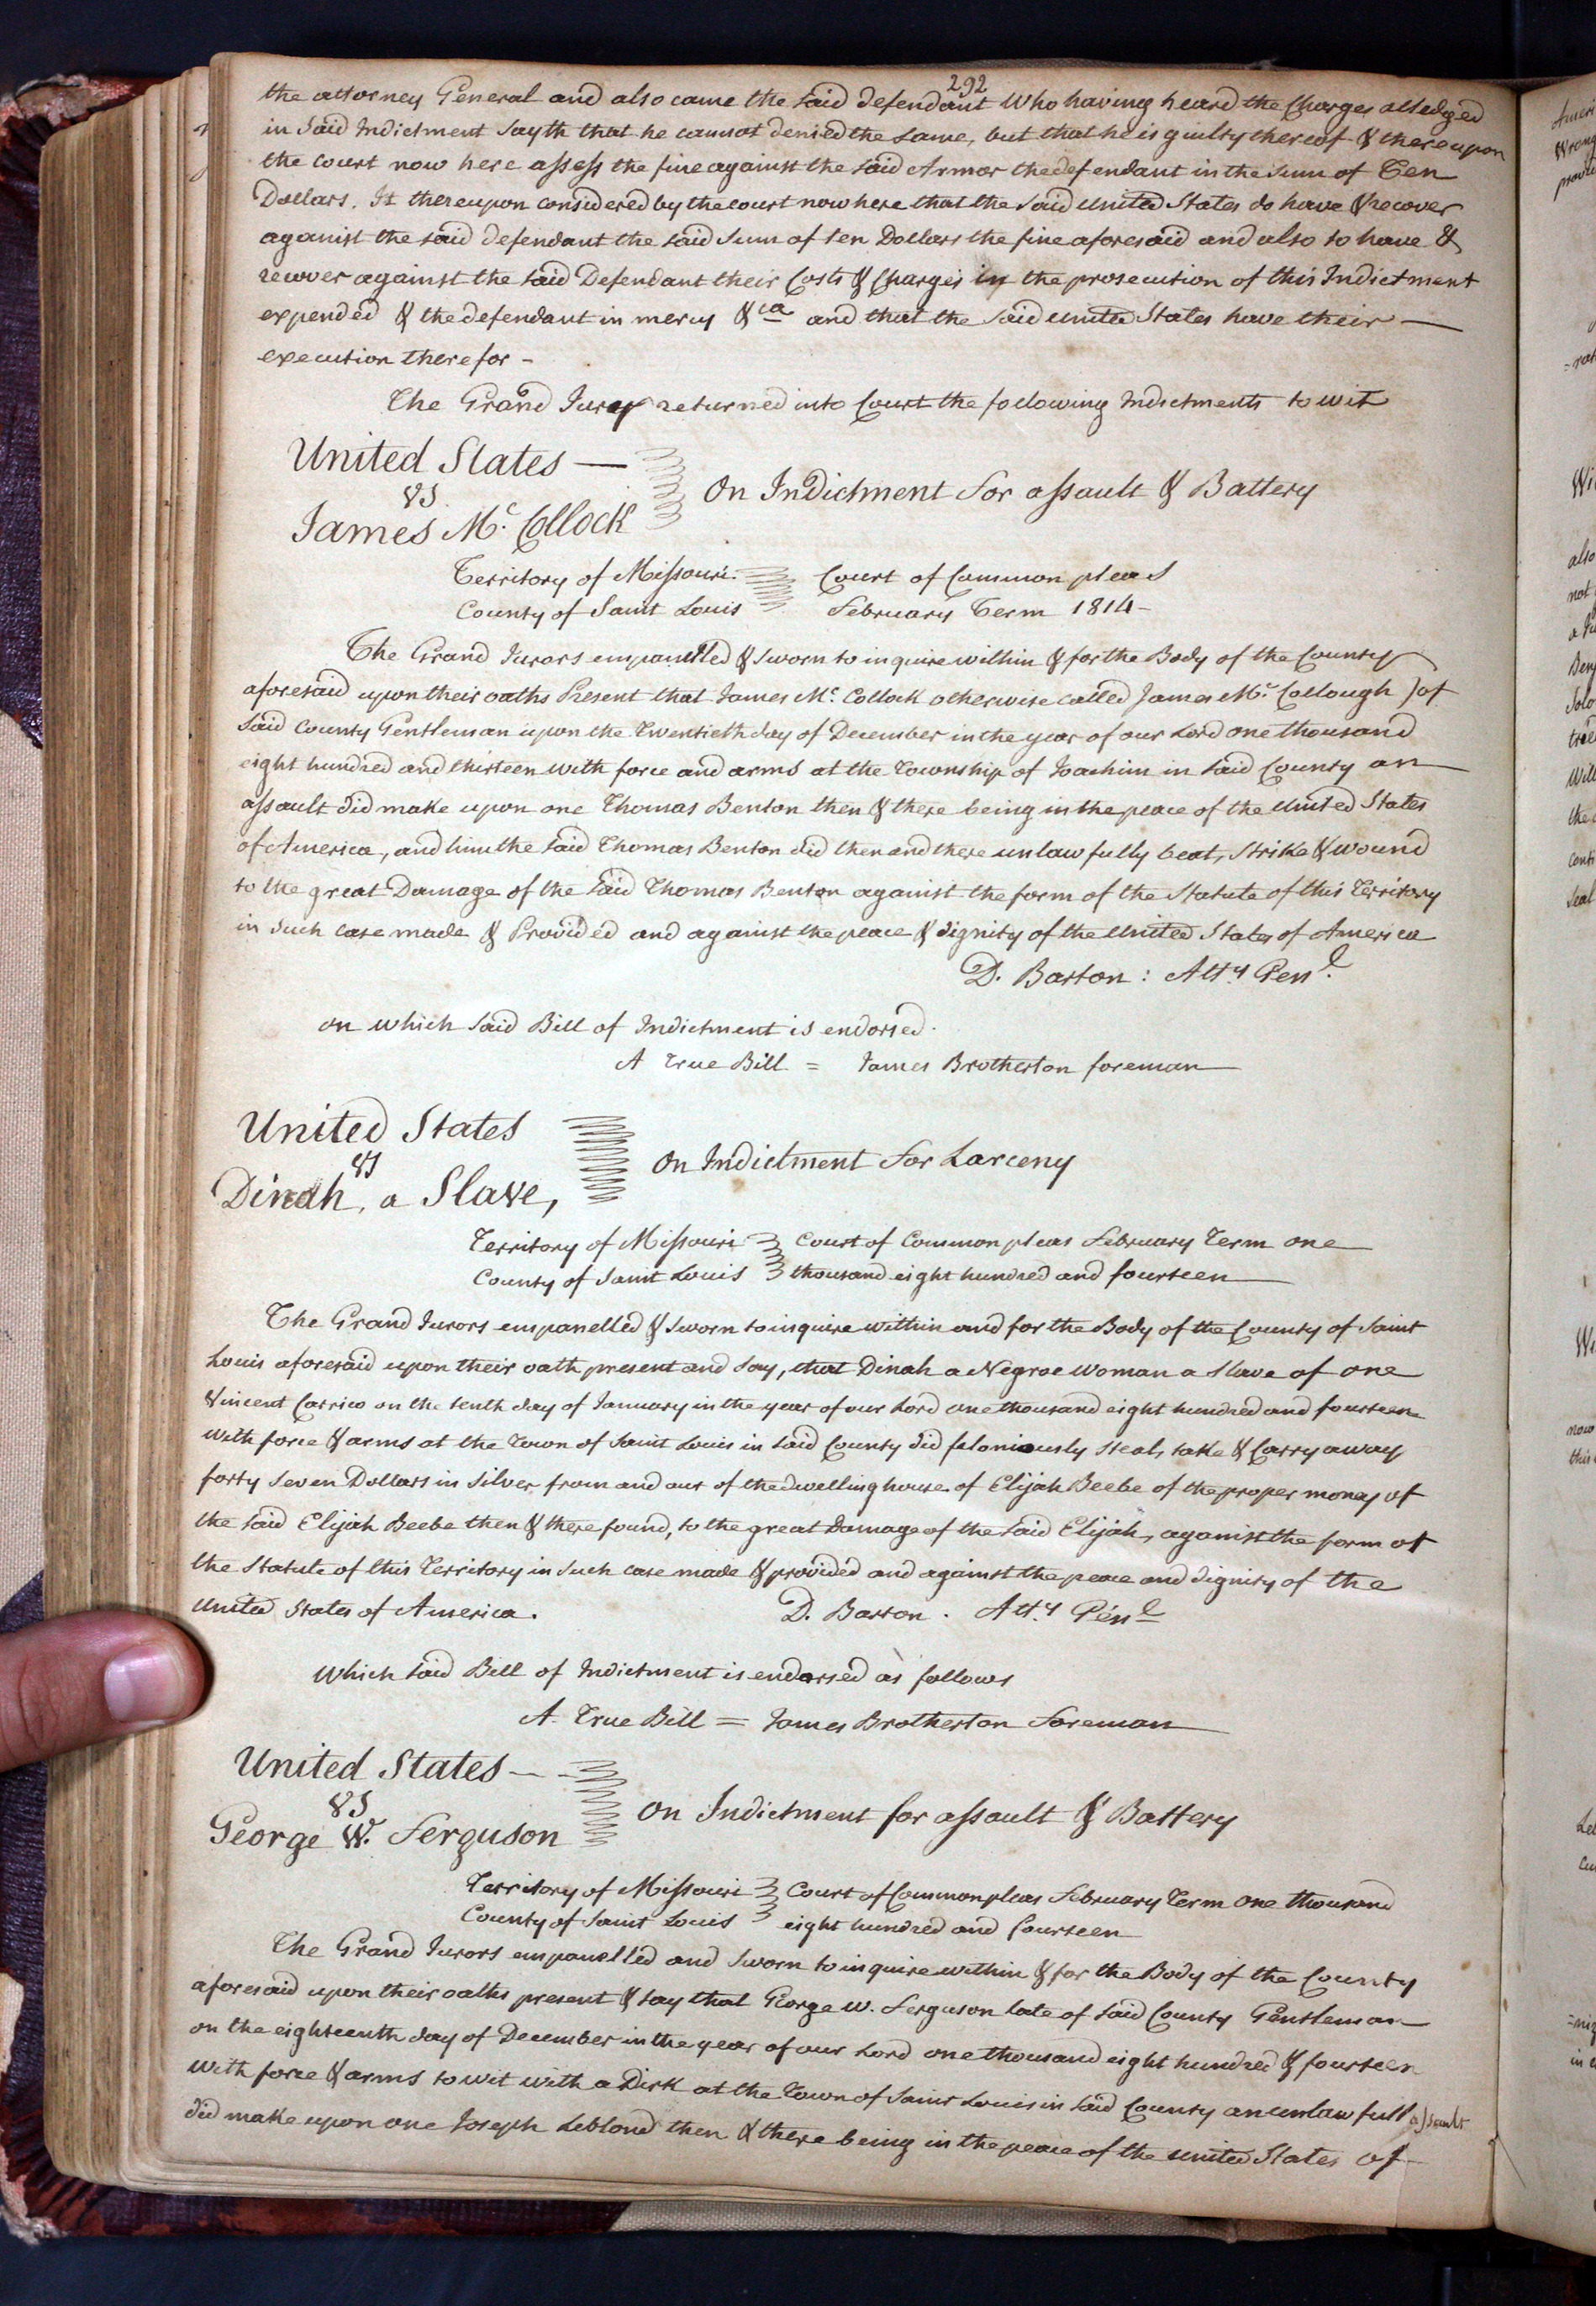 292
the attorney General and also came the said defendant Who having heard the Charges alledged
in said Indictment Sayth that he cannot denied the same, but that he is guilty thereof & thereupon
the court now here assess the fine against the said Armor the defendant in the Sum of Ten
Dollars. It thereupon considered by the court now here that the said United States do have & recover
against the said defendant the said Sum of ten Dollars the fine aforesaid and also to have &
recover against the said Defendant their Costs & Charges in the prosecution of this Indictment
expended & the defendant in mercy &ca and that the said United States have their —
execution therefor -
The Grand Jury returned into Court the following Indictments to wit
United States —
vs
James Mc. Collock
On Indictment for assault & Battery
Territory of Missouri. Court of Common pleas
County of Saint Louis February Term 1814 -
The Grand Jurors empanelled & sworn to inquire within & for the Body of the County
aforesaid upon their oaths Present that James Mc. Collock otherwise called James Mc. Collough) of
said County Gentleman upon the Twentieth day of December in the year of our Lord one thousand
eight hundred and thirteen with force and arms at the Township of Joachim in said County an —
assault did make upon one Thomas Benton then & there being in the peace of the United States
of America, and him the said Thomas Benton did then and there unlawfully beat, strike & wound
to the great Damage of the said Thomas Benton against the form of the Statute of this Territory
in such case made & Provided and against the peace & dignity of the United States of America
D. Barton : Atty Genl.
on which said Bill of Indictment is endorsed.
A True Bill = James Brotherton foreman —
United States
vs
Dinah, a Slave,
On Indictment for Larceny
Territory of Missouri Court of Common pleas February Term one —
County of Saint Louis thousand eight hundred and fourteen —
The Grand Jurors empanelled & sworn to inquire within and for the Body of the County of Saint
Louis aforesaid upon their oath present and say, that Dinah a Negroe Woman a slave of one
Vincent Carrico on the tenth day of January in the year of our Lord one thousand eight hundred and fourteen
with force & arms at the Town of Saint Louis in said County did feloniously steal, take & Carry away
forty seven Dollars in silver from and out of the dwelling house of Elijah Beebe of the proper money of
the said Elijah Beebe then & there found, to the great Damage of the said Elijah, against the form of
the Statute of this Territory in such case made & provided and against the peace and dignity of the
United States of America. D. Barton. Atty Genl
Which said Bill of Indictment is endorsed as follows
A. True Bill = James Brotherton Foreman —
United States — -
vs
George W. Ferguson
On Indictment for assault & Battery
Territory of Missouri Court of Common pleas February Term one thousand
County of Saint Louis eight hundred and fourteen
The Grand Jurors empanelled and sworn to inquire within & for the Body of the County
aforesaid upon their oaths present & say that George W. Ferguson late of said County Gentleman —
on the eighteenth day of December in the year of our Lord one thousand eight hundred & fourteen
with force & arms to wit with a Dirk at the Town of Saint Louis in said County an unlawfull assault
did make upon one Joseph Leblond then & there being in the peace of the United States of —